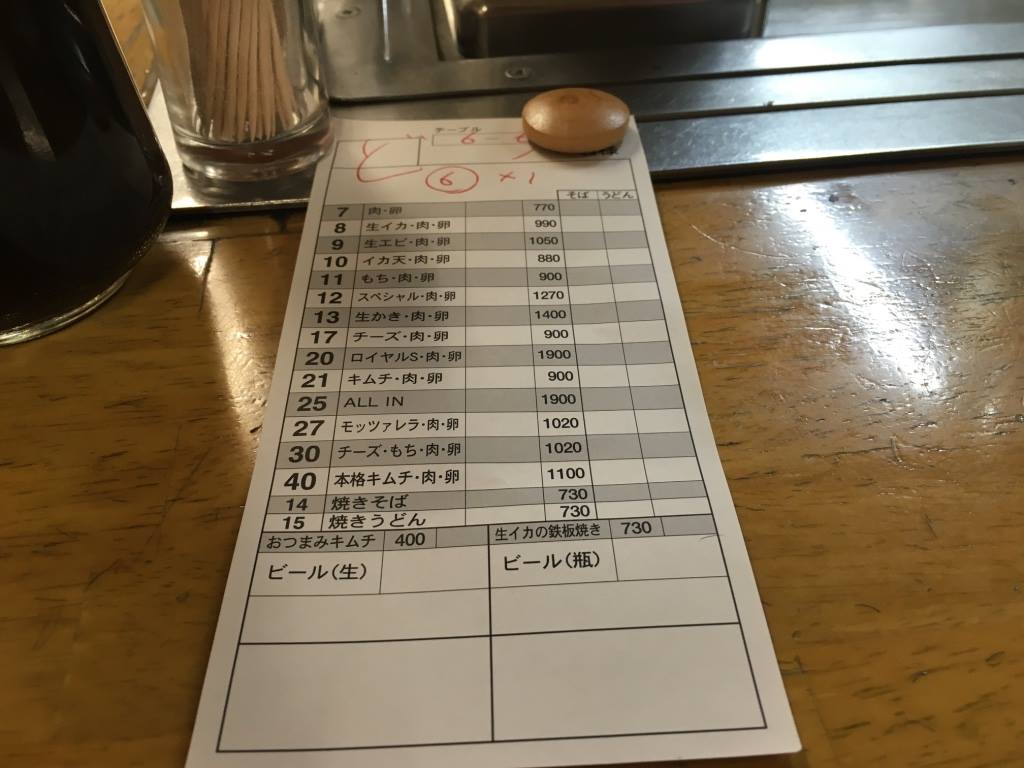 テーブル
6
と
⑥ ×1
そば うどん
7 肉・卵 770
8 生イカ・肉・卵 990
9 生エビ・肉・卵 1050
10 イカ天・肉・卵 880
11 もち・肉・卵 900
12 スペシャル・肉・卵 1270
13 生かき・肉・卵 1400
17 チーズ・肉・卵 900
20 ロイヤルS・肉・卵 1900
21 キムチ・肉・卵 900
25 ALL IN 1900
27 モッツァレラ・肉・卵 1020
30 チーズ・もち・肉・卵 1020
40 本格キムチ・肉・卵 1100
14 焼きそば 730
15 焼きうどん 730
おつまみキムチ 400 生イカの鉄板焼き 730
ビール(生) ビール(瓶)